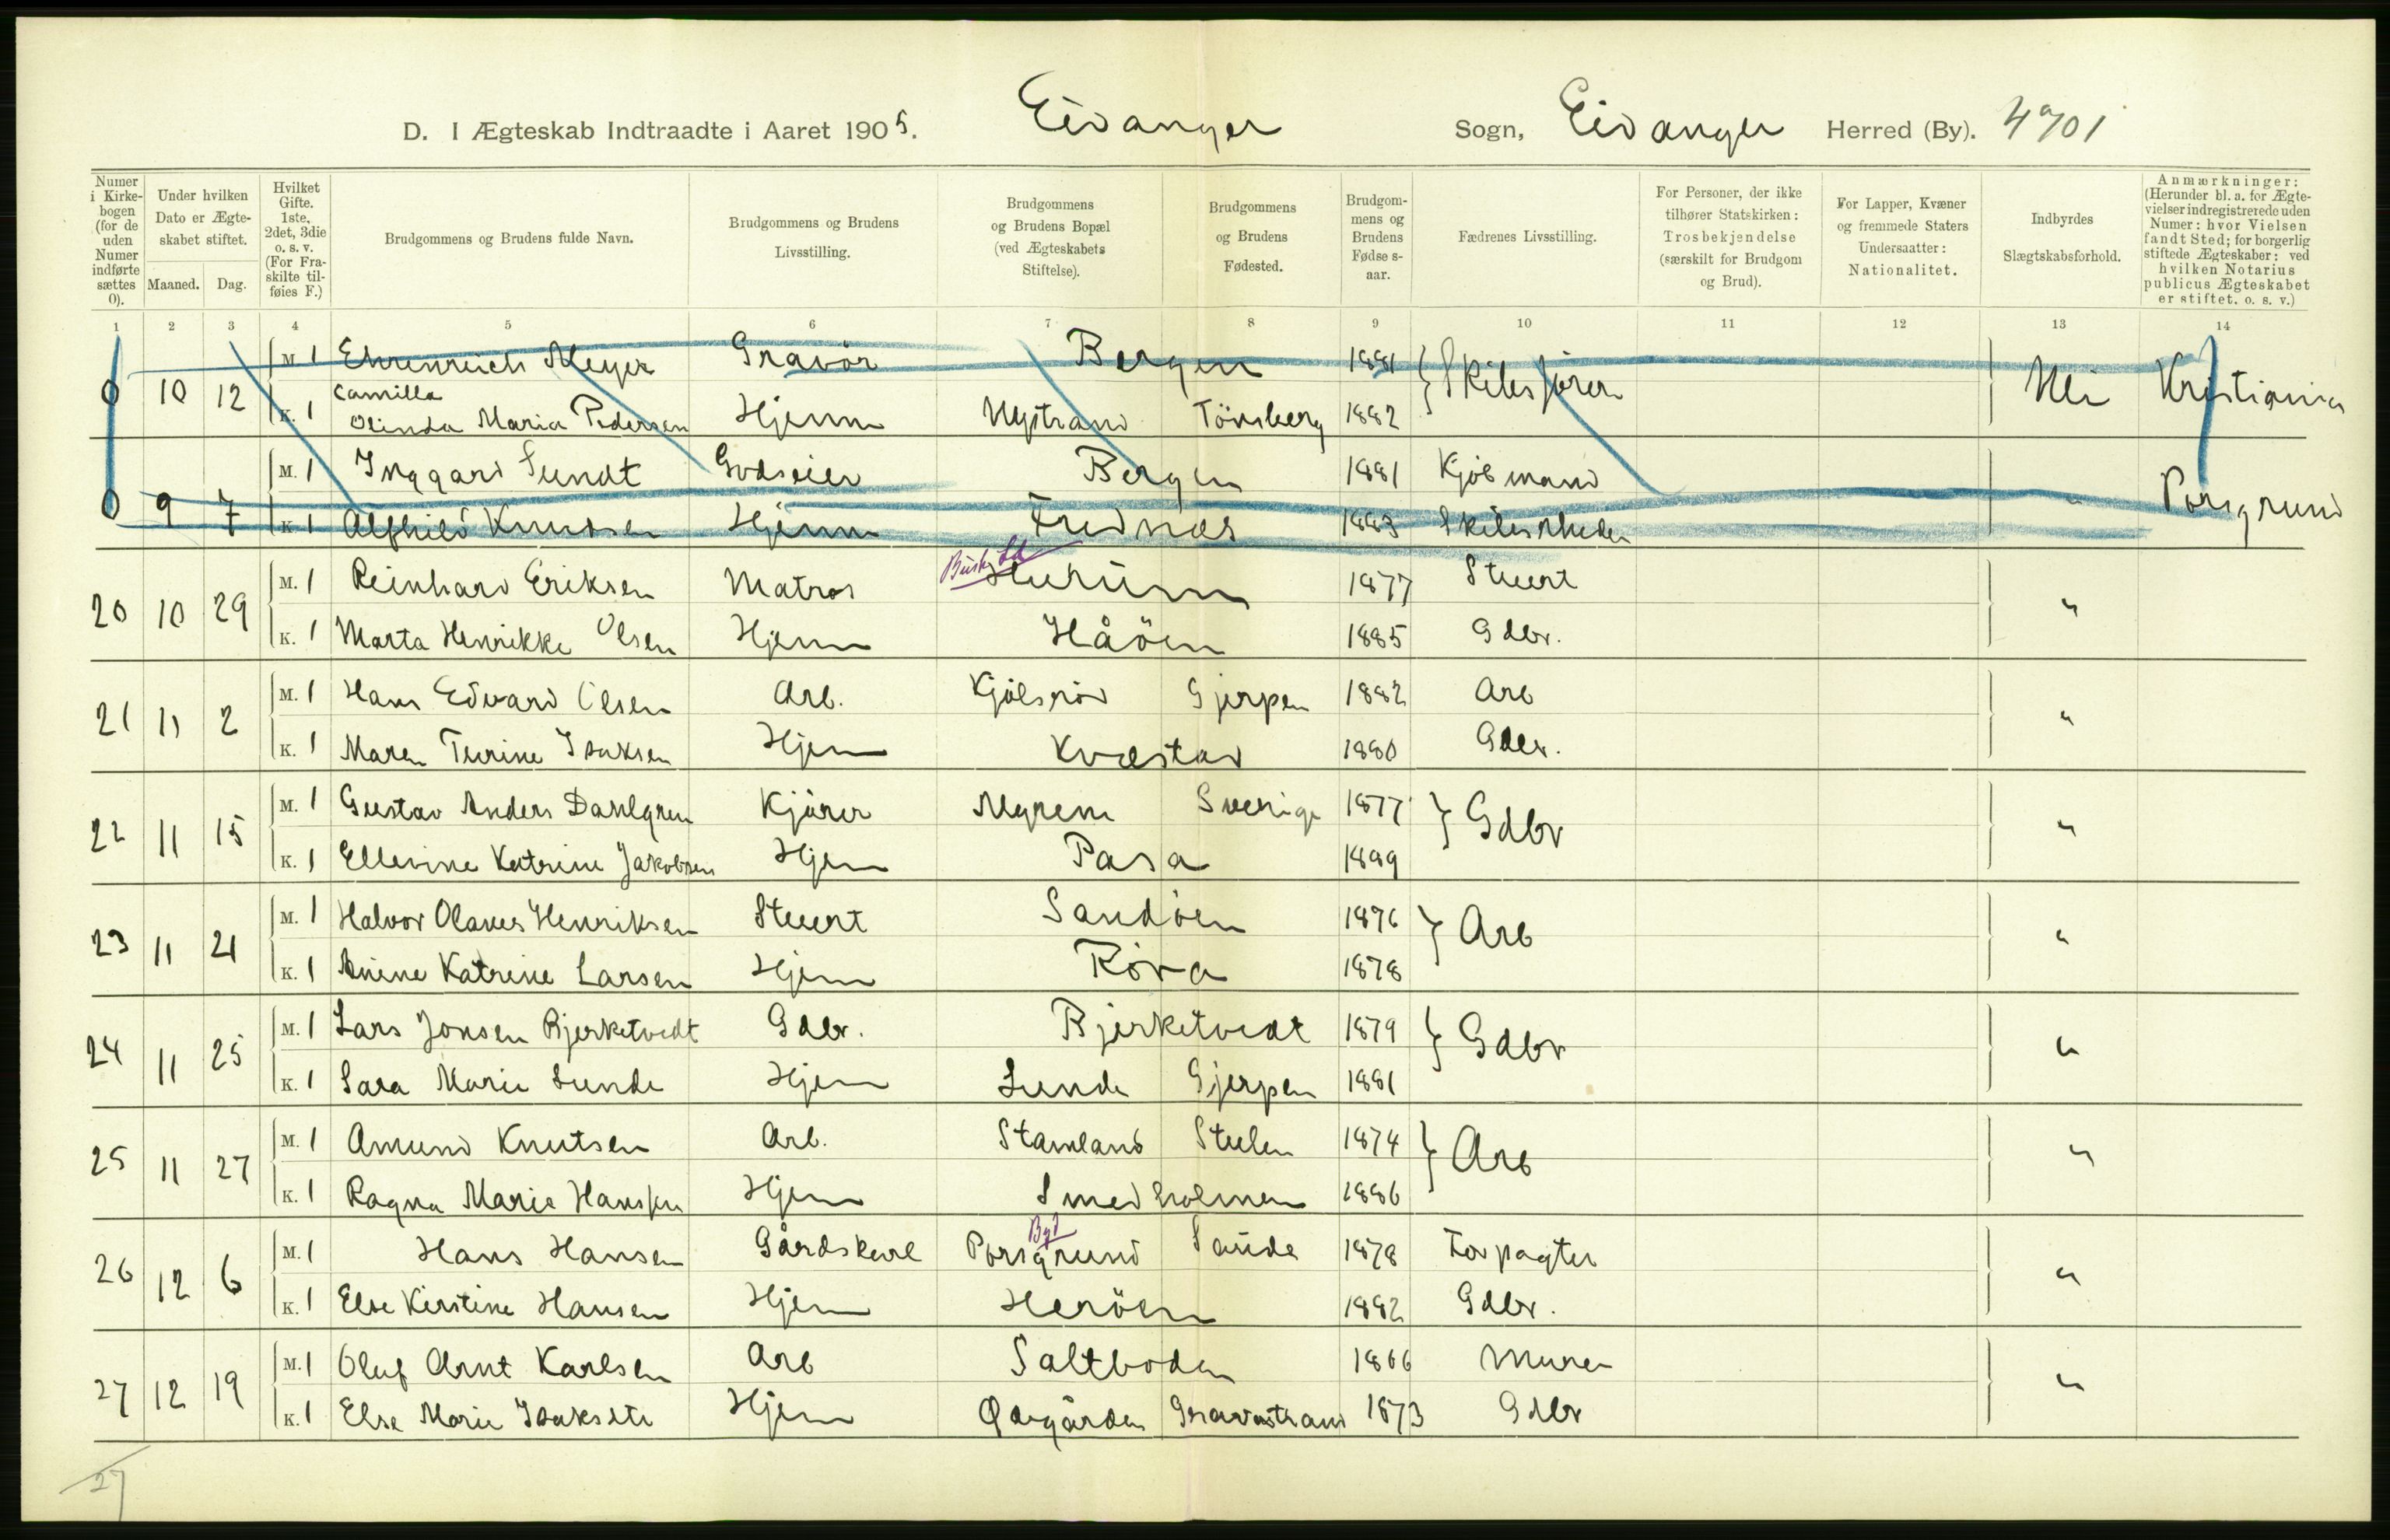 D. I Ægteskab Indtraadte i Aaret 1905. Eidanger Sogn, Eidanger Herred (By). 4701
Numer i Kirkebogen (for de uden Numer indførte sættes 0).
Under hvilken Dato er Ægteskabet stiftet.
Maaned. Dag.
Hvilket Gifte. 1ste, 2det, 3die o. s. v. (For Fraskilte tilføies F.)
Brudgommens og Brudens fulde Navn.
Brudgommens og Brudens Livsstilling.
Brudgommens og Brudens Bopæl (ved Ægteskabets Stiftelse).
Brudgommens og Brudens Fødested.
Brudgommens og Brudens Fødselsaar.
Fædrenes Livsstilling.
For Personer, der ikke tilhører Statskirken: Trosbekjendelse (særskilt for Brudgom og Brud).
For Lapper, Kvæner og fremmede Staters Undersaatter: Nationalitet.
Indbyrdes Slægtskabsforhold.
Anmærkninger: (Herunder bl. a. for Ægtevielser indregistrerede uden Numer: hvor Vielsen fandt Sted; for borgerlig stiftede Ægteskaber: ved hvilken Notarius publicus Ægteskabet er stiftet. o. s. v.)
1 2 3 4 5 6 7 8 9 10 11 12 13 14
M. 1 Ehrenreich Meyer Gravör Bergen 1881 Skibsfører
0 10 12 Nei Kristiania
Camilla
K. 1 Olinda Maria Pedersen Hjem Nystrand Tönsberg 1882
M. 1 Inggard Sundt Godseier Bergen 1881 Kjöbmand
0 9 7 " Porsgrund
K. 1 Alfhild Knudsen Hjem Frednæs 1883 Skibsrheder
Busk
M. 1 Reinhard Eriksen Matros Hurum 1877 Stuert
20 10 29 "
K. 1 Marta Henrikke Olsen Hjem Håöen 1885 Gdbr.
M. 1 Hans Edvard Olsen Arb. Kjölsröd Gjerpen 1882 Arb
21 11 2 "
K. 1 Maren Turine Isaksen Hjem Kvæstad 1880 Gdbr.
M. 1 Gustav Anders Dahlgren Kjører Myrene Sverige 1877 Gdbr
22 11 15 "
K. 1 Ellevine Katrine Jakobsen Hjem Pasa 1889
M. 1 Halvor Olaves Henriksen Stuert Sandöen 1876 Arb
23 11 21 "
K. 1 Anine Katrine Larsen Hjem Röra 1878
M. 1 Lars Jonsen Bjerketvedt Gdbr. Bjerketvedt 1879 Gdbr
24 11 25 "
K. 1 Sara Marie Lunde Hjem Lunde Gjerpen 1881
M. 1 Amund Knutsen Arb. Stamland 1874 Arb
25 11 27 "
K. 1 Ragna Marie Hanssen Hjem Smedholmen 1886
By
M. 1 Hans Hansen Gårdskarl Porsgrund Saude 1878 Forpagter
26 12 6 "
K. 1 Else Kirstine Hansen Hjem Heröen 1882 Gdbr.
M. 1 Oluf Arnt Karlsen Arb Saltboden 1866 Murer
27 12 19 "
K. 1 Else Marie Isaksdtr Hjem Ødegården 1873 Gdbr
27